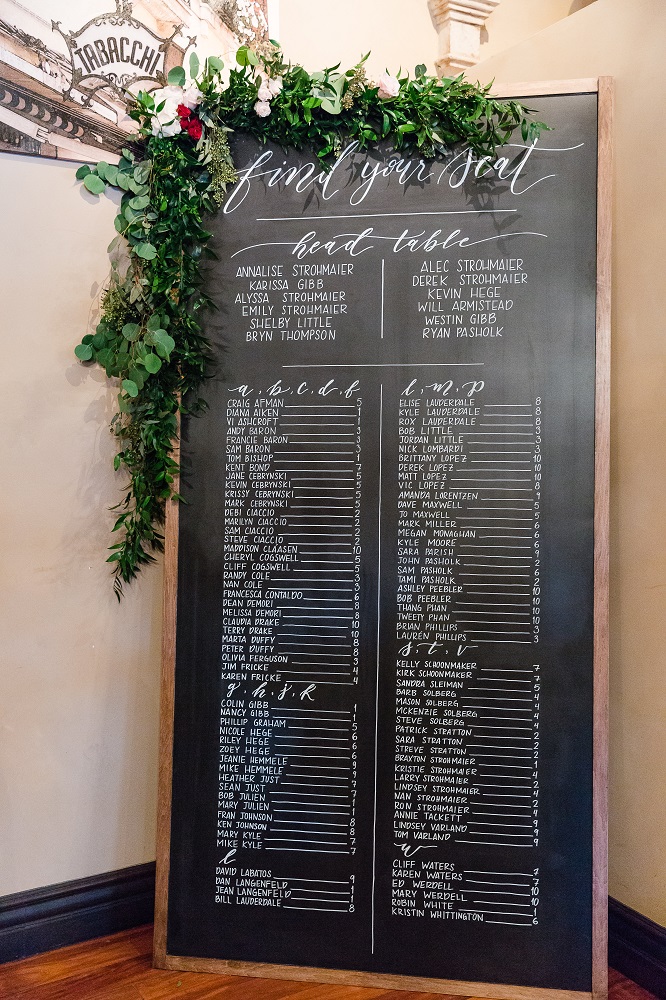 TABACCHI
find your seat
head table
ANNALISE STROHMAIER
KARISSA GIBB
ALYSSA STROHMAIER
EMILY STROHMAIER
SHELBY LITTLE
BRYN THOMPSON
ALEC STROHMAIER
DEREK STROHMAIER
KEVIN HEGE
WILL ARMISTEAD
WESTIN GIBB
RYAN PASHOLK
a, b, c, d, f
CRAIG AFMAN 5
DIANA AIKEN 1
VI ASHCROFT 1
ANDY BARON 3
FRANCIE BARON 3
SAM BARON 3
TOM BISHOP 1
KENT BOND 7
JANE CEBRYNSKI 5
KEVIN CEBRYNSKI 5
KRISSY CEBRYNSKI 5
MARK CEBRYNSKI 5
DEBI CIACCIO 2
MARILYN CIACCIO 2
SAM CIACCIO 2
STEVE CIACCIO 2
MADDISON CLAASEN 10
CHERYL COGSWELL 5
CLIFF COGSWELL 5
RANDY COLE 3
NAN COLE 3
FRANCESCA CONTALDO 6
DEAN DEMORI 8
MELISSA DEMORI 8
CLAUDIA DRAKE 10
TERRY DRAKE 10
MARTA DUFFY 8
PETER DUFFY 8
OLIVIA FERGUSON 3
JIM FRICKE 4
KAREN FRICKE 4
g, h, j, k
COLIN GIBB 1
NANCY GIBB 1
PHILLIP GRAHAM 5
NICOLE HEGE 6
RILEY HEGE 6
ZOEY HEGE 6
JEANIE HEMMELE 9
MIKE HEMMELE 9
HEATHER JUST 7
SEAN JUST 7
BOB JULIEN 1
MARY JULIEN 1
FRAN JOHNSON 8
KEN JOHNSON 8
MARY KYLE 7
MIKE KYLE 7
l
DAVID LABATOS 9
DAN LANGENFELD 1
JEAN LANGENFELD 1
BILL LAUDERDALE 8
l, m, p
ELISE LAUDERDALE 8
KYLE LAUDERDALE 8
ROX LAUDERDALE 8
BOB LITTLE 3
JORDAN LITTLE 3
NICK LOMBARDI 3
BRITTANY LOPEZ 10
DEREK LOPEZ 10
MATT LOPEZ 10
VIC LOPEZ 8
AMANDA LORENTZEN 9
DAVE MAXWELL 5
TO MAXWELL 5
MARK MILLER 6
MEGAN MONAGHAN 6
KYLE MOORE 6
SARA PARISH 9
JOHN PASHOLK 2
SAM PASHOLK 6
TAMI PASHOLK 2
ASHLEY PEEBLER 10
BOB PEEBLER 10
THANG PHAN 10
TWEETY PHAN 10
BRIAN PHILLIPS 3
LAUREN PHILLIPS 3
s, t, v
KELLY SCHOONMAKER 7
KIRK SCHOONMAKER 7
SANDRA SLEIMAN 5
BARB SOLBERG 4
MASON SOLBERG 4
MCKENZIE SOLBERG 4
STEVE SOLBERG 4
PATRICK STRATTON 2
SARA STRATTON 2
STEVE STRATTON 2
BRAXTON STROHMAIER
KRISTIE STROHMAIER 4
LARRY STROHMAIER
LINDSEY STROHMAIER 4
NAN STROHMAIER 2
RON STROHMAIER
ANNIE TACKETT
LINDSEY VARLAND 9
TOM VARLAND 9
w
CLIFF WATERS 7
KAREN WATERS 7
ED WERDELL 10
MARY WERDELL 10
ROBIN WHITE 1
KRISTIN WHITTINGTON 6